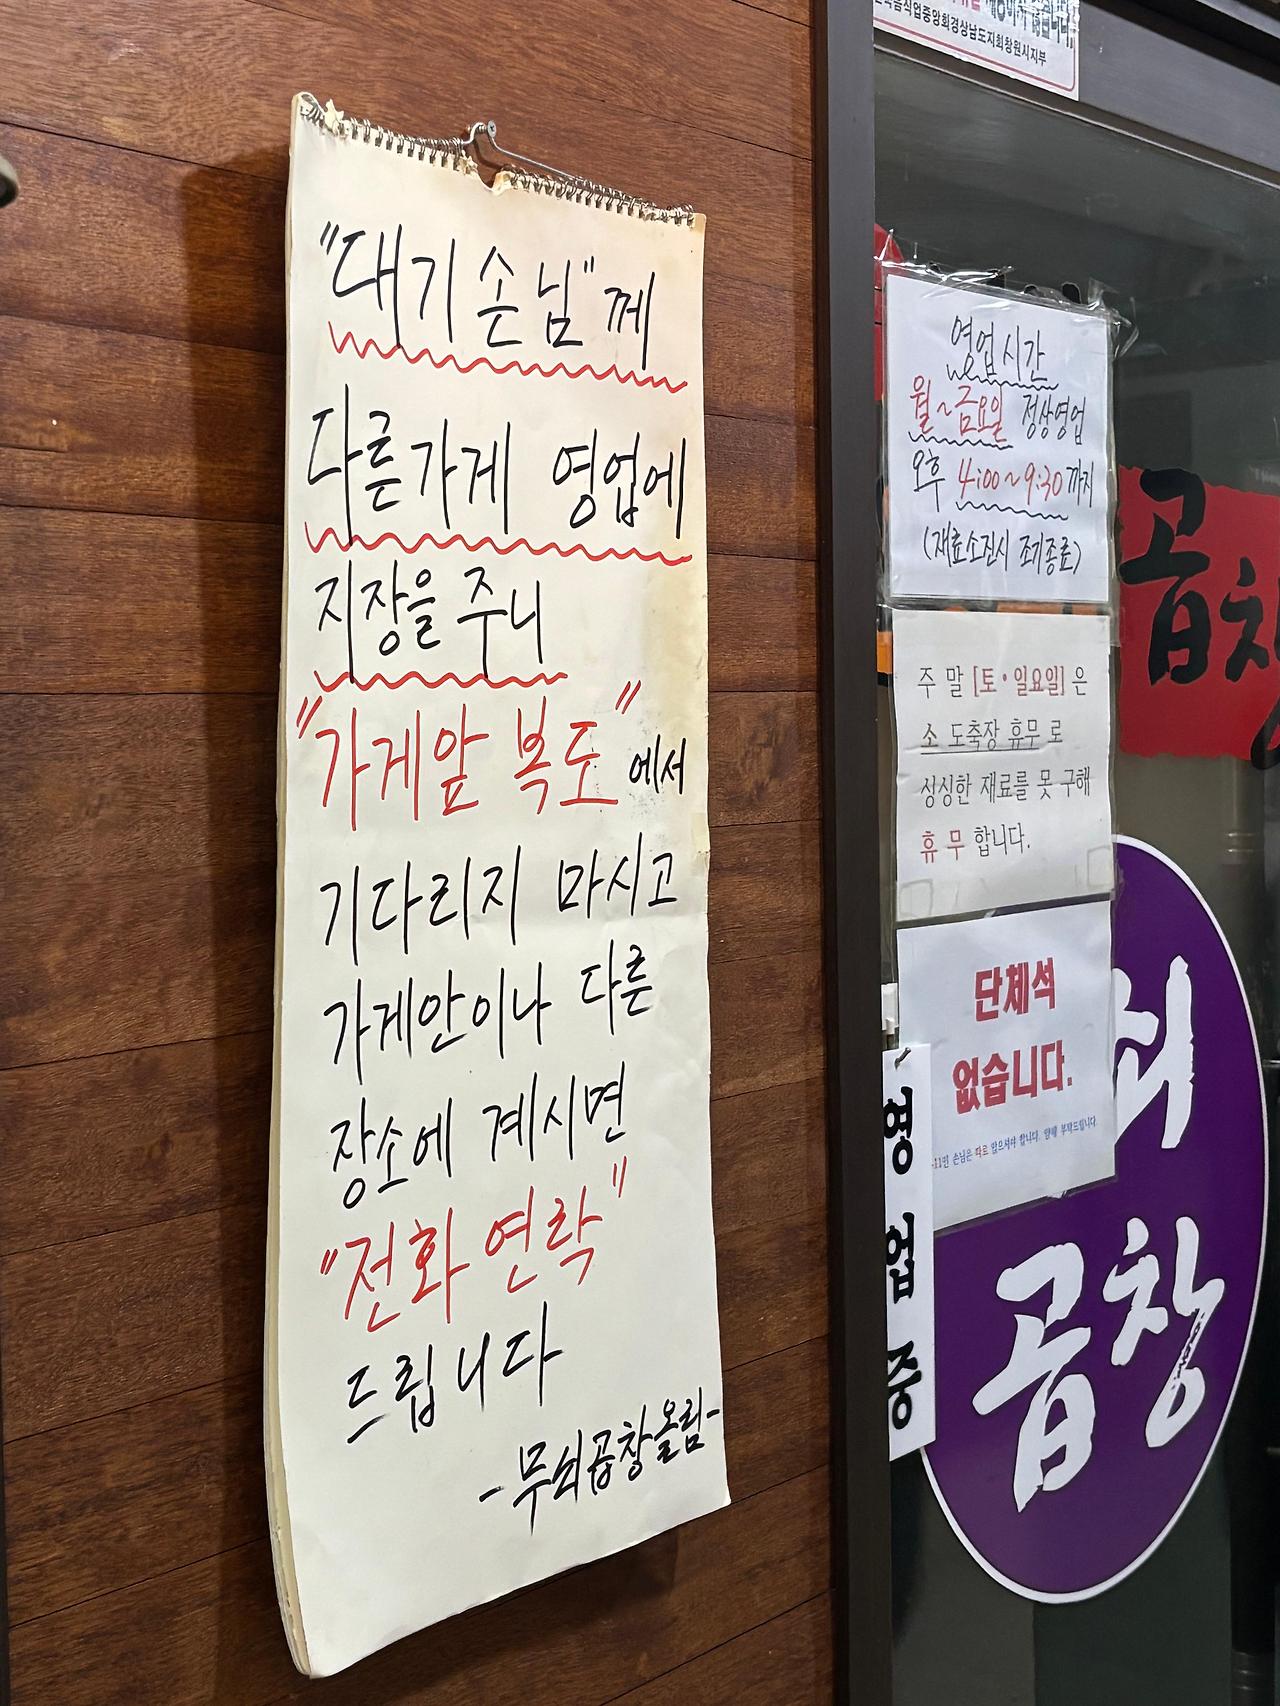 "대기손님"께
다른가게 영업에
지장을 주니
"가게앞 복도"에서
기다리지 마시고
가게안이나 다른
장소에 계시면
"전화 연락"
드립니다
-무쇠곱창올림-
음식업중앙회경상남도지회창원시지부
영업시간
월~금요일 정상영업
오후 4:00~9:30까지
(재료소진시 조기종료)
주 말 [토·일요일] 은
소 도축장 휴무 로
싱싱한 재료를 못 구해
휴 무 합니다.
단체석
없습니다.
손님은 따로 앉으셔야 합니다. 양해 부탁드립니다.
영업중
곱창
쇠
곱창